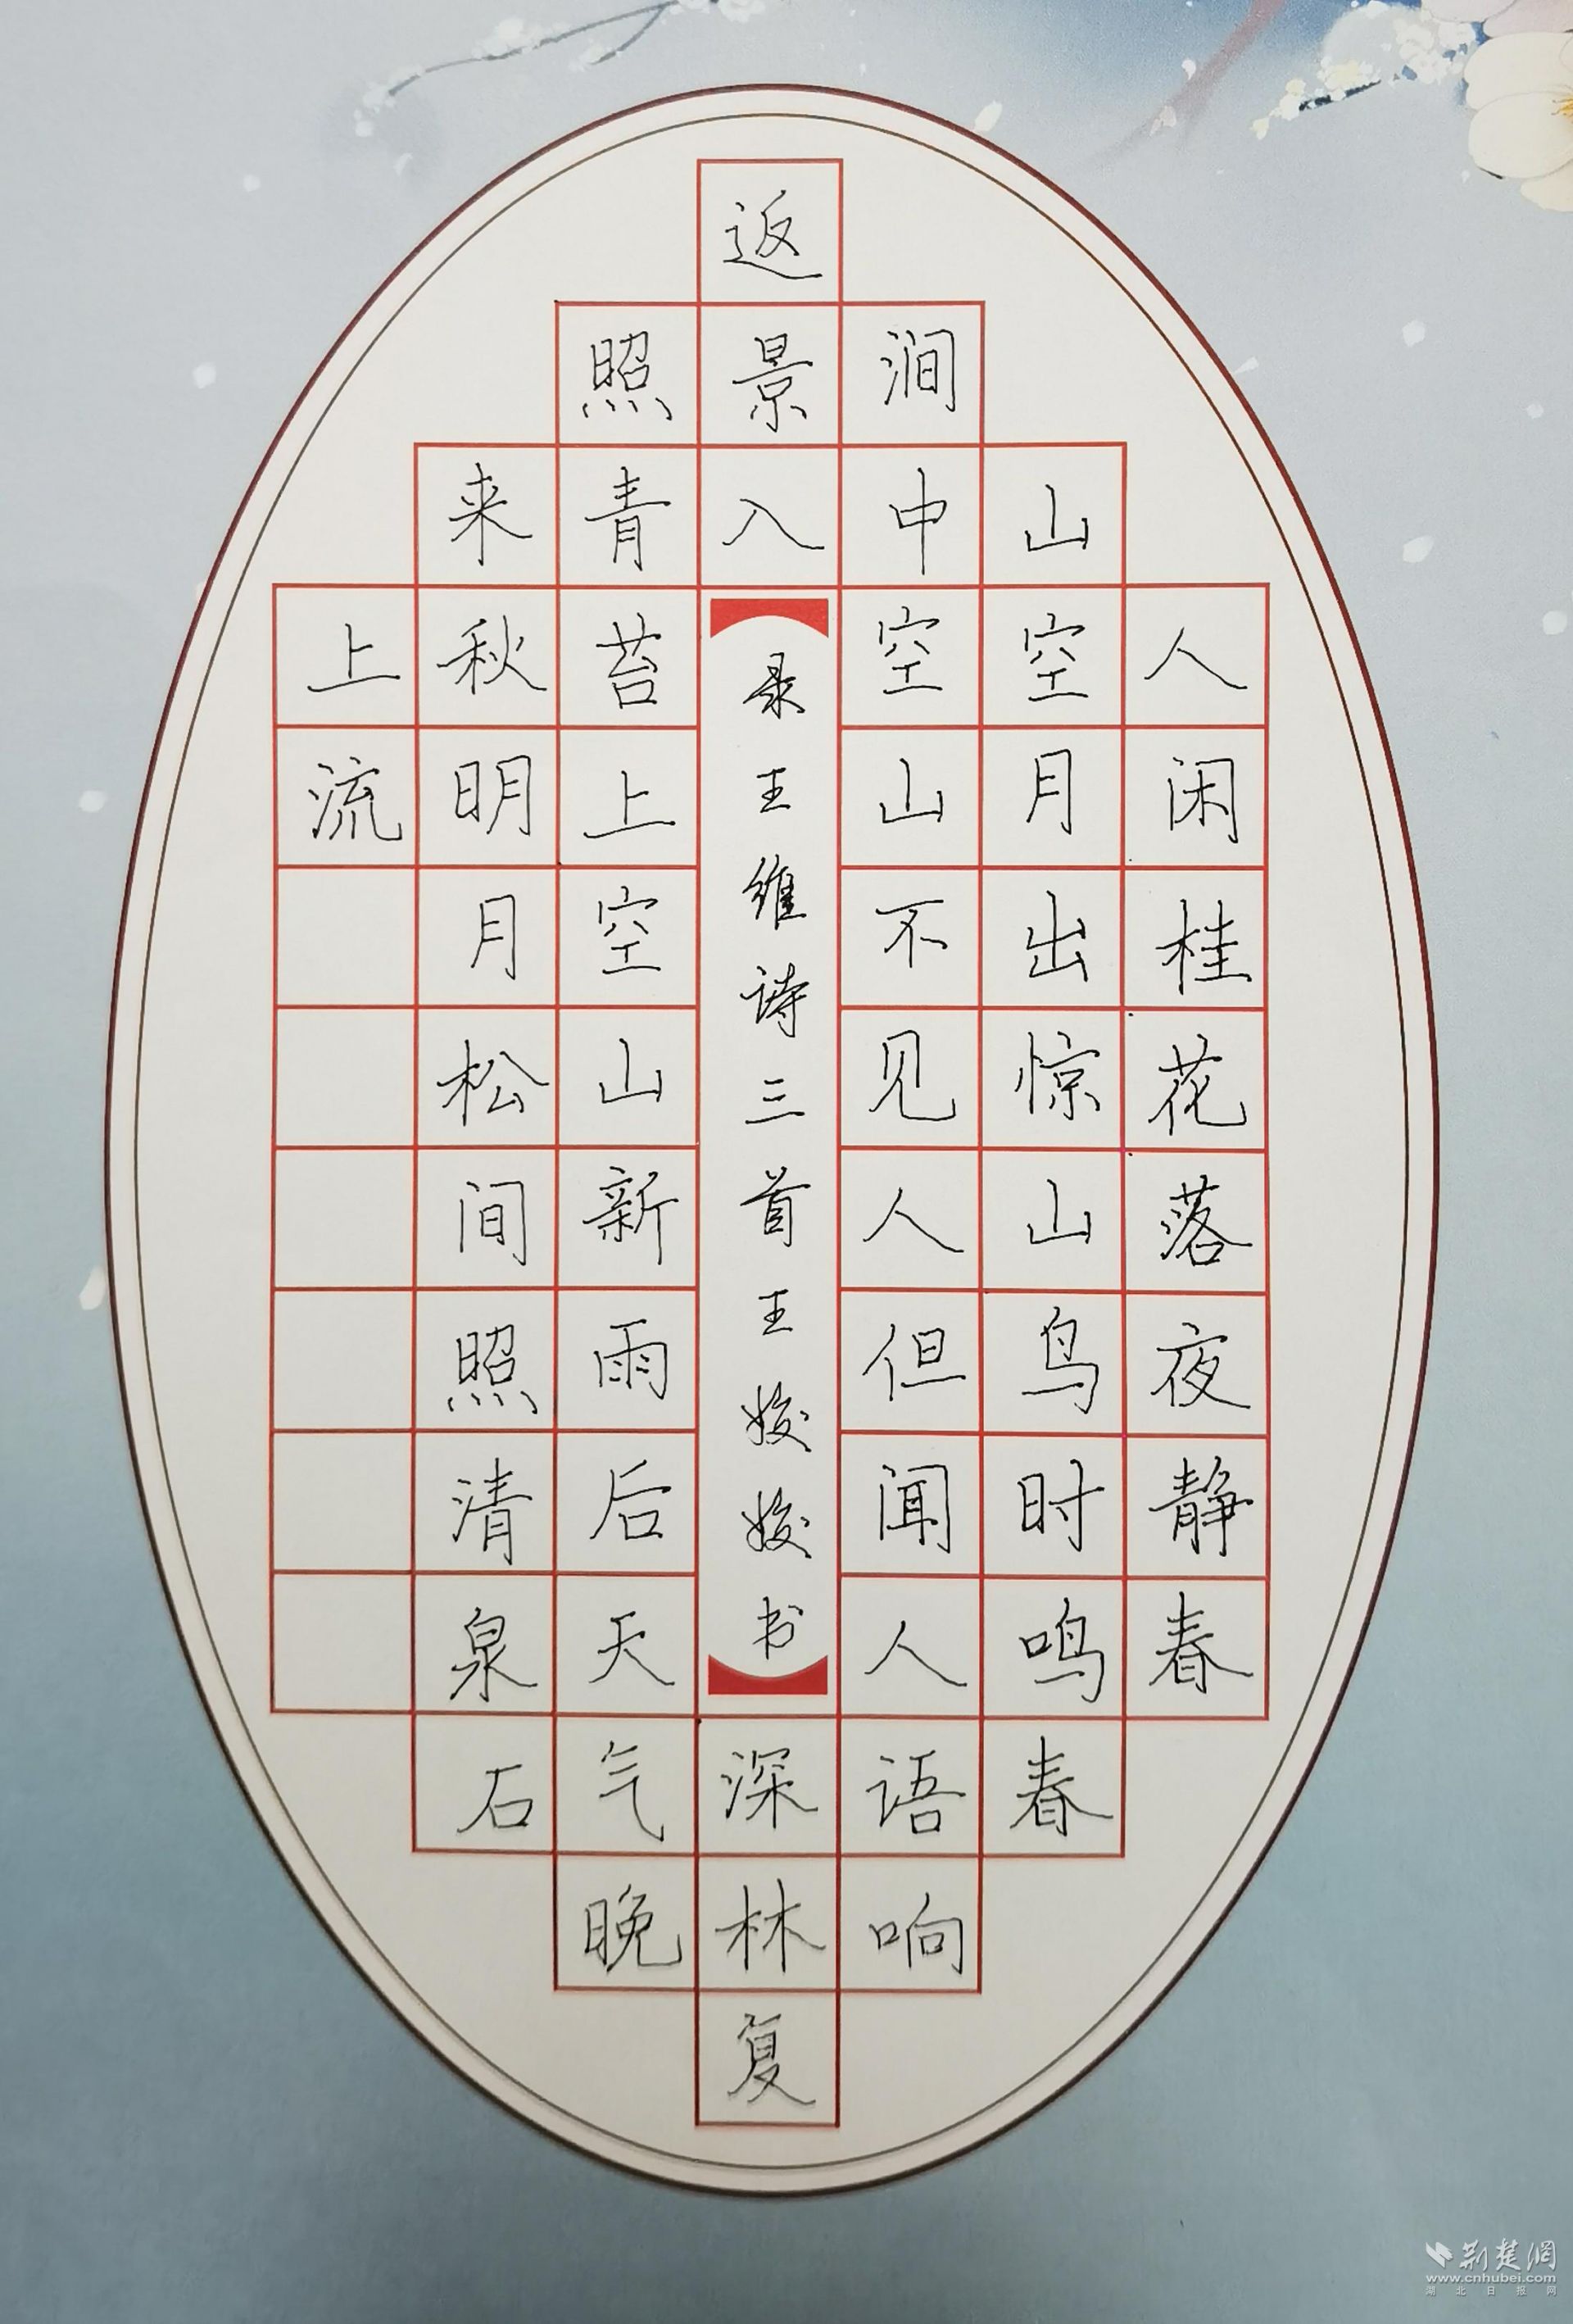 人闲桂花落夜静春
山空月出惊山鸟时鸣春
涧中空山不见人但闻人语响
返景入深林复
照青苔上空山新雨后天气晚
来秋明月松间照清泉石
上流
录王维诗三首王姣姣书
荆楚網
www.cnhubei.com
湖北日报网